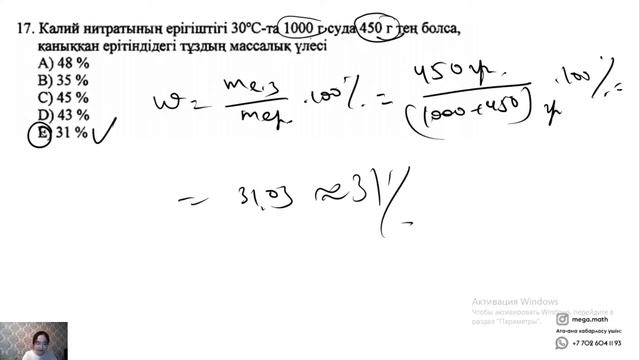 17. Калий нитратының ерігіштігі 30°С-та 1000 г суда 450 г тең болса,
қаныққан ерітіндідегі тұздың массалық үлесі
A) 48 %
B) 35 %
C) 45 %
D) 43 %
E) 31 %
w = mе.з / mер · 100% = 450гр. / (1000+450) гр · 100% =
= 31,03 ≈ 31%
Активация Windows
Чтобы активировать Windows, перейдите в
раздел "Параметры".
mega.math
Ата-ана хабарласу үшін:
+7 702 604 11 93